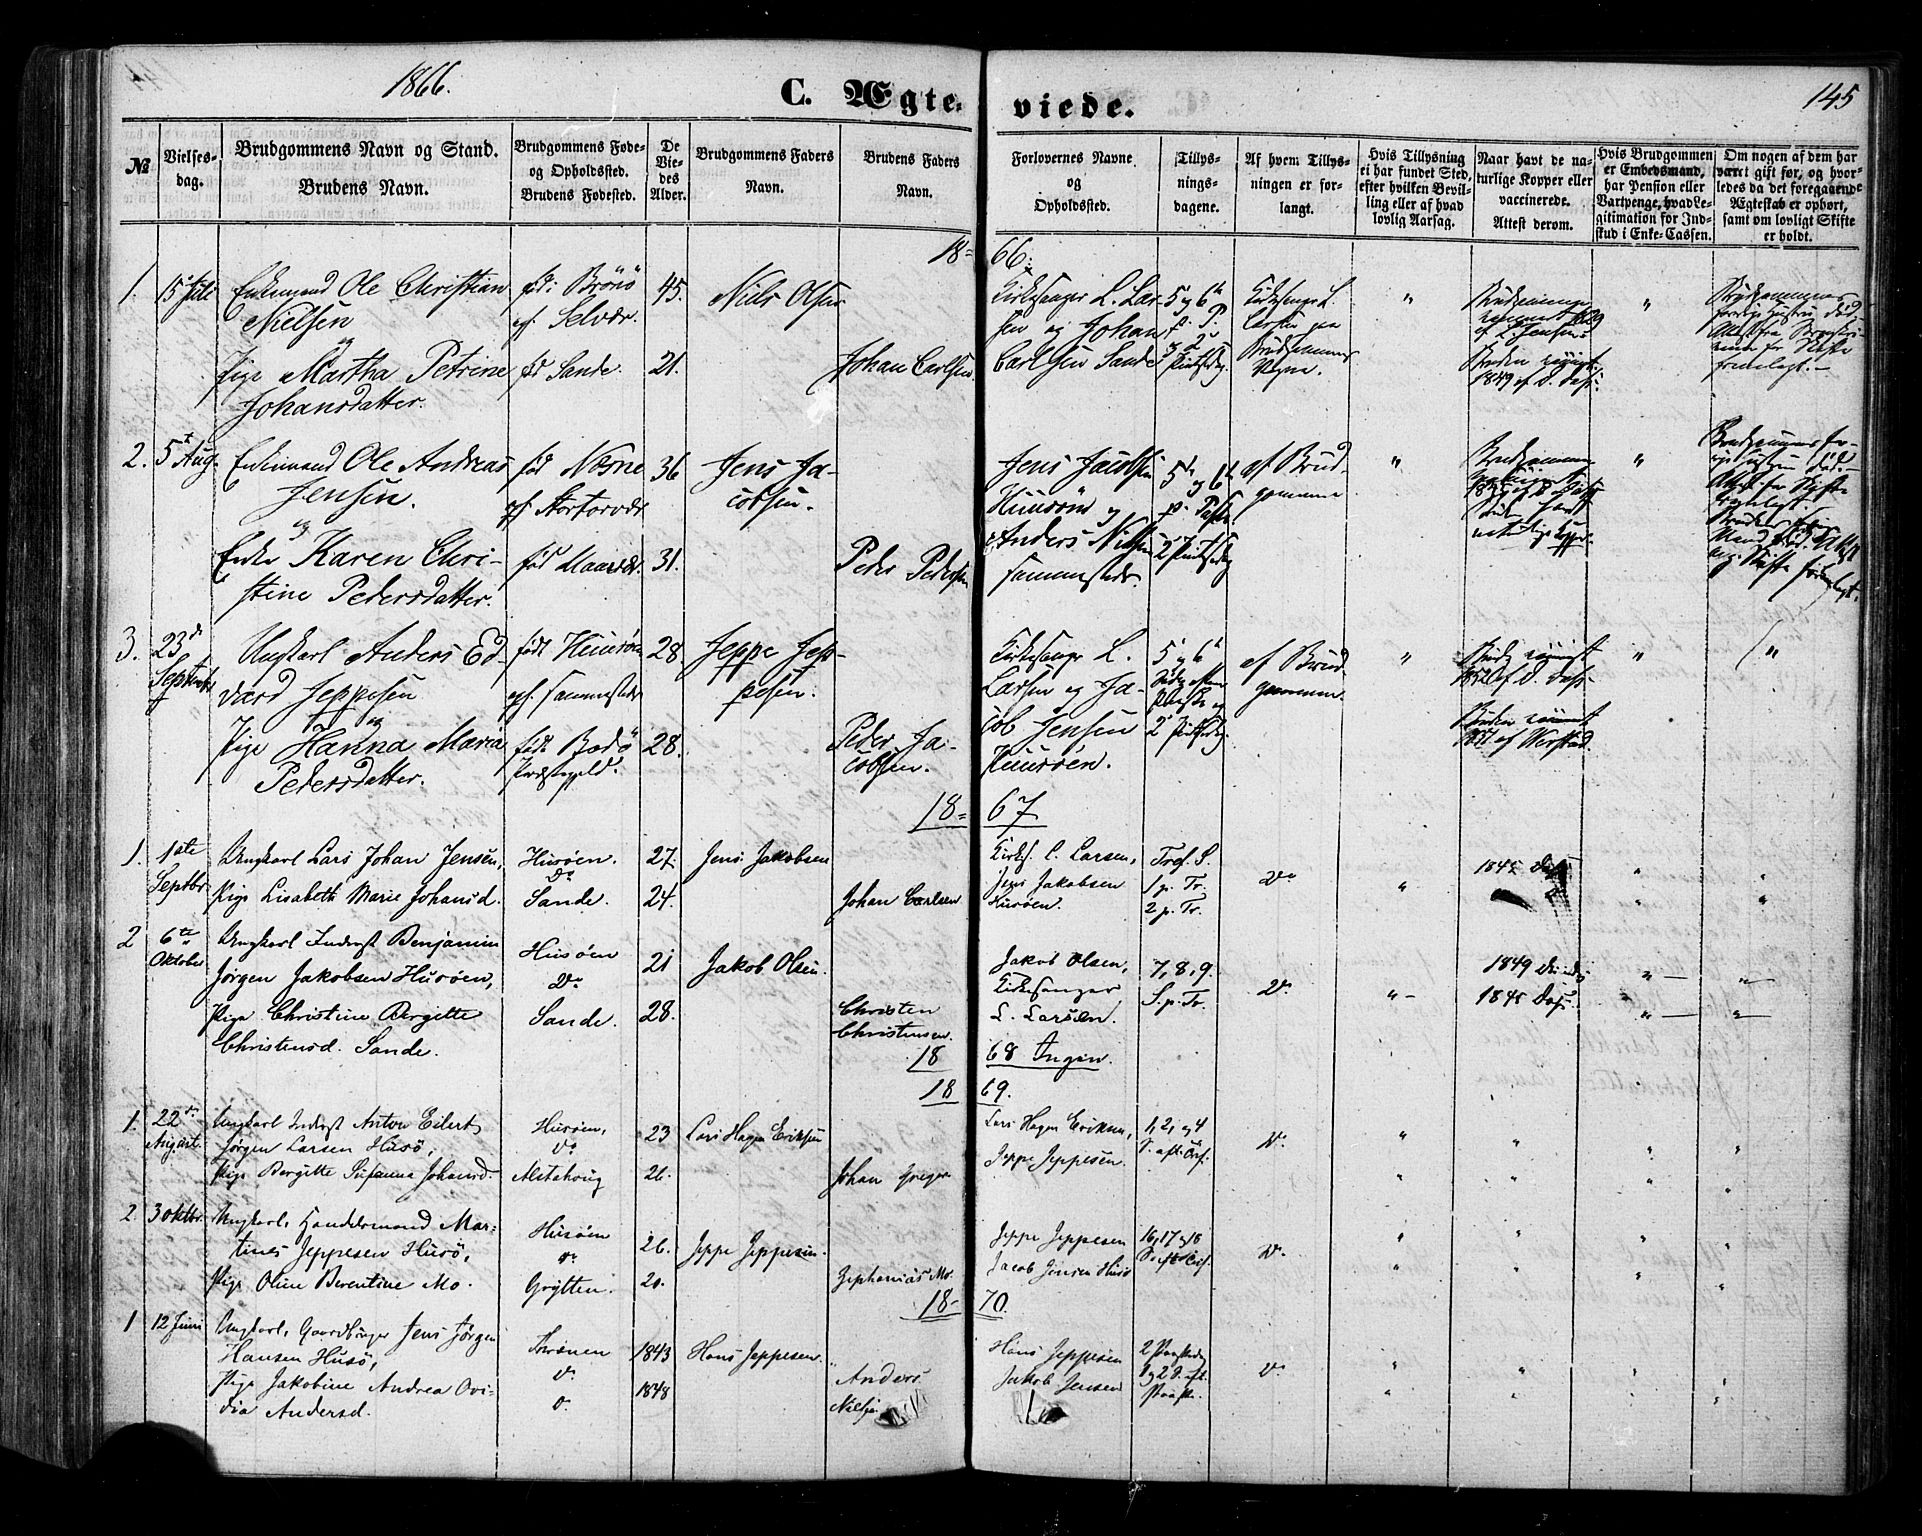 1866.
C. Ægte-
viede.
145
№
Vielses-
dag.
Brudgommens Navn og Stand.
Brudens Navn.
Brudgommens Føde-
og Opholdssted.
Brudens Fødested.
De
Vie-
des
Alder.
Brudgommens Faders
Navn.
Brudens Faders
Navn.
Forlovernes Navne
og
Opholdssted.
Tillys-
nings-
dagene.
Af hvem Tillys-
ningen er for-
langt.
Hvis Tillysning
ei har fundet Sted,
efter hvilken Bevil-
ling eller af hvad
lovlig Aarsag.
Naar havt de na-
turlige Kopper eller
vaccinerede.
Attest derom.
Hvis Brudgommen
er Embedsmand,
har Pension eller
Vartpenge, hvad Le-
gitimation for Ind-
skud i Enke-Cassen.
Om nogen af dem har
været gift før, og hvor-
ledes da det foregaaende
Ægteskab er ophørt,
samt om lovligt Skifte
er holdt.
18=
66.
1. 15 Juli Enkemand Ole Christian
Nielsen
og
Pige Martha Petrine
Johansdatter.
fød: Brønø
opf. Selvær.
fød Sande.
45.
21.
Niels Olsen
Johan Carlsen.
Kirkesanger L. Lar-
sen og Johan
Carlsen Sande
5 og 6
p. P.
2
Pintsedag.
Kirkesanger L.
Larsen paa
Brudgommens
Vegne.
"
1849 af D. Dass.
"
2. 5 Aug. Enkemand Ole Andreas
Jensen.
og
Enke Karen Chri-
stine Pedersdatter.
fød Næsne
opf Stortorvær
fød Maasvær.
36
31.
Jens Ja-
cobsen.
Peder Pedersen
Jens Jacobsen
Huusøen og
Anders Nilsen
sammesteds.
5 og 6
p. Paaske
2 Pintsedag
af Brud-
gommen
"
"
3. 23de
Septembr
Ungkarl Anders Ed-
vard Jeppesen
og
Pige Hanna Maria
Pedersdatter.
født Huusøen
opf. sammesteds
født Bodø
Præstegjeld.
28
28.
Jeppe Jep-
pesen.
Peder Ja-
cobsen.
Kirkesanger L.
Larsen og Ja-
cob Jensen
Huusøen.
5 og 6
Paaske og
2 Pintsedag.
af Brud-
gommen.
"
1852 af D. Dass.
"
"
18=
67
1. 1ste
Septbr.
Ungkarl Lars Johan Jensen,
Pige Lisabeth Marie Johansd.
Husøen.
Do
Sande.
27.
24.
Jens Jakobsen
Johan Carlsen
Kirkes. L. Larsen,
Jens Jakobsen
Husøen.
Tref. S.
1 p. Tr.
2 p. Tr.
Do
"
1845
"
2 6te
Oktober
Ungkarl Inderst Benjamin
Jørgen Jakobsen Husøen,
Pige Christine Bergitte
Christensd. Sande.
Husøen
Do
Sande.
21
28.
Jakob Olsen.
Christen
Christensen.
Jakob Olsen,
Kirkesanger
L. Larsen.
7, 8, 9.
S. p. Tr.
Do
"
1849
1845 Dass.
"
18
68 Ingen.
18
69.
1. 22de
August.
Ungkarl Inderst Anton Eilert
Jørgen Larsen Husø,
Pige Bergitte Susanna Johansd.
Husøen,
Do
Alstahoug
23
26.
Lars Hagen Eriksen
Johan Greger
Lars Hagen Eriksen,
Jeppe Jeppesen.
1, 2, og 4
S. aft.
Do
2. 3 Oktbr. Ungkarl, Handelsmand Mar-
tines Jeppesen Husø,
Pige Oline Berentine Mo.
Husøen
Do
Grytten.
26.
20.
Jeppe Jeppesen.
Zephanias Mo.
Jeppe Jeppesen
Jacob Jensen Husø
16, 17 og 18
Do
18-
70.
1 12 Juni Ungkarl, Gaardbruger Jens Jørgen
Hansen Husø,
Pige Jakobine Andrea Ovi-
dia Andersd.
Husøen
Do
Do
1843
1848
Hans Jeppesen.
Anders
Hans Jeppesen
Jakob Jensen
2 Paaskedag
1 og 2 S. eft.
Paaske.
Do